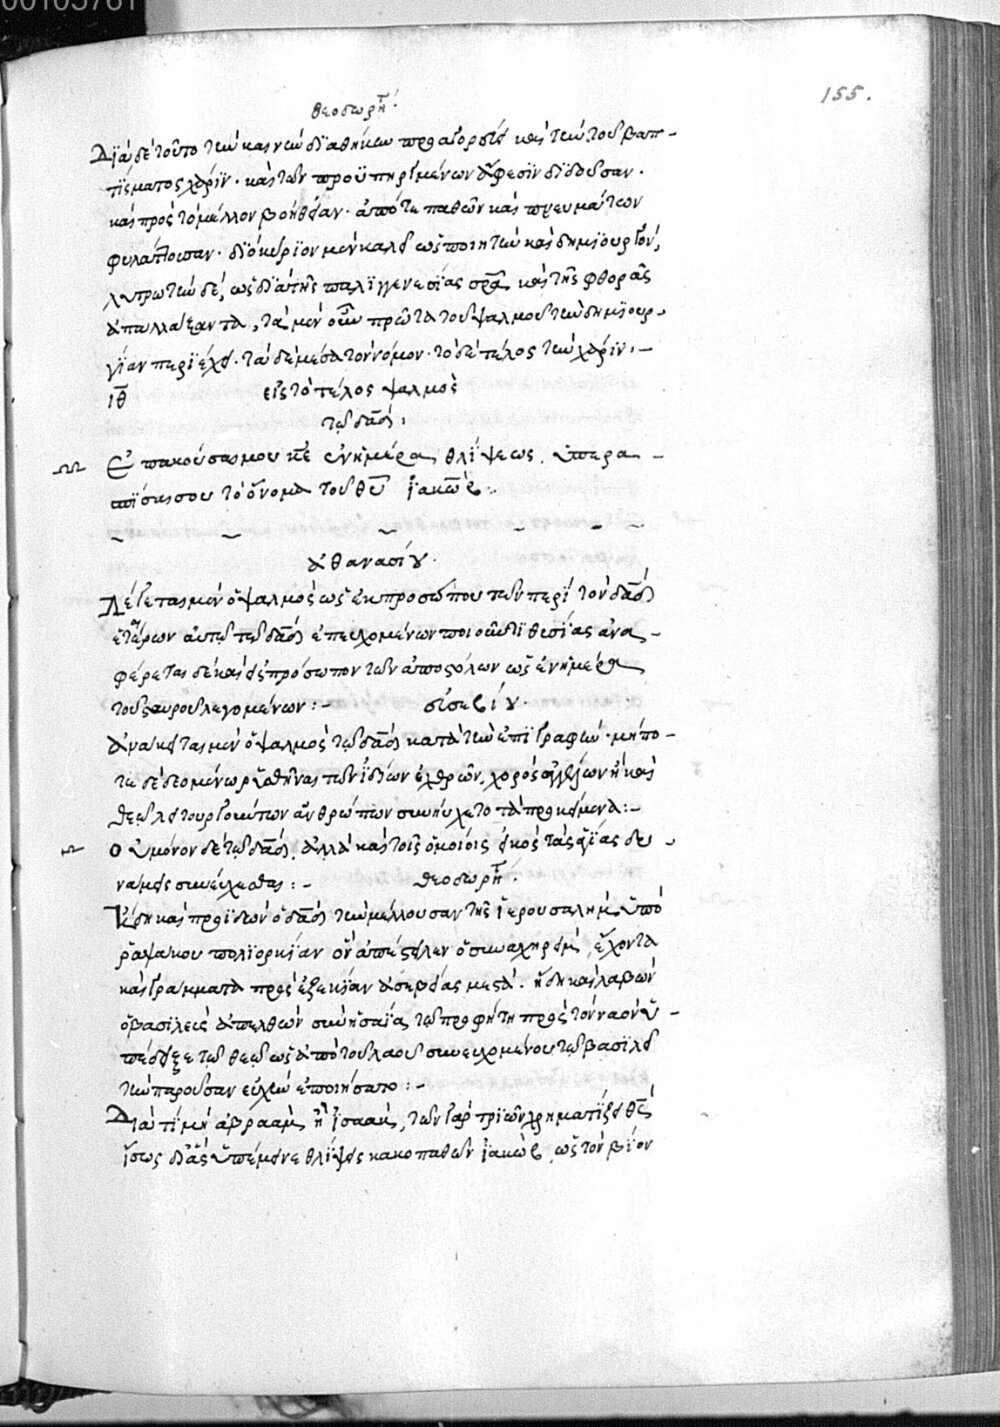 00105761
155.
θεοδωρήτ:
Διὰ δὲ τοῦτο τὴν καινὴν διαθήκην προσαγορεύει καὶ τὴν τοῦ βαπ-
τίσματος χάριν· καὶ τῶν προϋπηργμένων ἄφεσιν διδοῦσαν·
καὶ πρὸς τὸ μέλλον βοήθειαν· ἀπό τε παθῶν καὶ πνευμάτων
φυλάττουσαν· διὸ κύριον μὲν καλεῖ ὡς ποιητὴν καὶ δημιουργόν,
λυτρωτὴν δὲ, ὡς διὰ τῆς παλιγγενεσίας καὶ τῆς φθορᾶς
ἀπαλλάξαντα, τὰ μὲν οὖν πρῶτα τοῦ ψαλμοῦ τὴν δημιουρ-
γίαν περιέχει· τὰ δὲ μέσα τὸν νόμον· τὸ δὲ τέλος τὴν χάριν:-
ιθ εἰς τὸ τέλος ψαλμὸς
τῷ δαδ:
Ἐπακούσαι μου κς ἐν ἡμέρα θλίψεως, ὑπερα-
σπίσαι σου τὸ ὄνομα τοῦ θυ ἰακώβ:
ἀθανασίου·
Λέγεται μὲν ὁ ψαλμὸς ὡς ἐκ προσώπου τῶν περὶ τὸν δαδ
ἑταίρων αὐτῷ τῷ δαδ ἐπευχομένων ποιοῦντι θυσίας ἀνα-
φέρεται δὲ καὶ εἰς πρόσωπον τῶν ἀποστόλων ὡς ἐν ἡμέρα
τοῦ σταυροῦ λεγομένων:- εὐσεβίου·
Ἀνάκειται μὲν ὁ ψαλμὸς τῷ δαδ κατὰ τὴν ἐπιγραφήν· μήπο-
τε δὲ δεομένω ῥυσθῆναι τῶν ἰδίων ἐχθρῶν, χορὸς ἀγγέλων ἢ καὶ
θεῷ λειτουργούντων ἀνθρώπων συνηύχετο τὰ προκείμενα:-
Οὐ μόνον δὲ τῷ δαδ, ἀλλὰ καὶ τοῖς ὁμοίοις εἰκὸς τὰς ἁγίας δυ-
νάμεις συνεύχεσθαι:- θεοδωρήτ·
καὶ προϊδὼν ὁ δαδ τὴν μέλλουσαν τῆς ἱερουσαλὴμ ὑπὸ
ῥαψάκου πολιορκίαν ὃν ἀπέστειλεν ὁ συναχηρεὶμ, ἔχοντα
καὶ γράμματα πρὸς ἐζεκίαν ἀσεβείας μεστά· ἤδη καὶ λαβὼν
ὁ βασιλεὺς ἀπελθὼν σὺν ἡσαΐα τῷ προφήτη πρὸς τὸν ναὸν ὑ-
πέδειξε τῷ θεῷ ὡς ἀπὸ τοῦ λαοῦ συνευχομένου τῷ βασιλεῖ
τὴν παροῦσαν εὐχὴν ἐποιήσατο:-
Διὰ τί μὴ ἀβραὰμ ἢ ἰσαὰκ, τῶν γὰρ τριῶν χρηματίζει θς
ἴσως ὑπέμεινε θλίψεις κακοπαθῶν ἰακὼβ, ὡς τὸν βίον